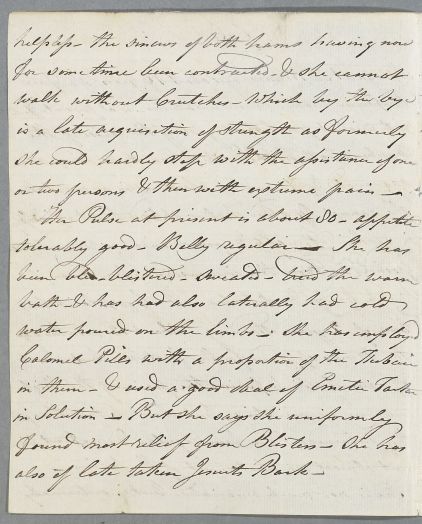 helpless - the sinews of both hams having now
for some time been contracted - & she cannot
walk without Crutches - Which by the bye
is a late acquisition of strength as formerly
she could hardly step with the assistance of one
or two persons & then with extreme pain -
Her Pulse at present is about 80 - appetite
tolerably good - Belly regular - She has
been bled - blistered - sweated - tried the warm
bath - & has had also latterly had cold
water poured on the limbs - She has employed
Calomel Pills with a proportion of the
in them - & used a good deal of Emetic Tartar
in Solution - But she says she uniformly
found most relief from Blisters - She has
also of late taken Jesuits Bark -